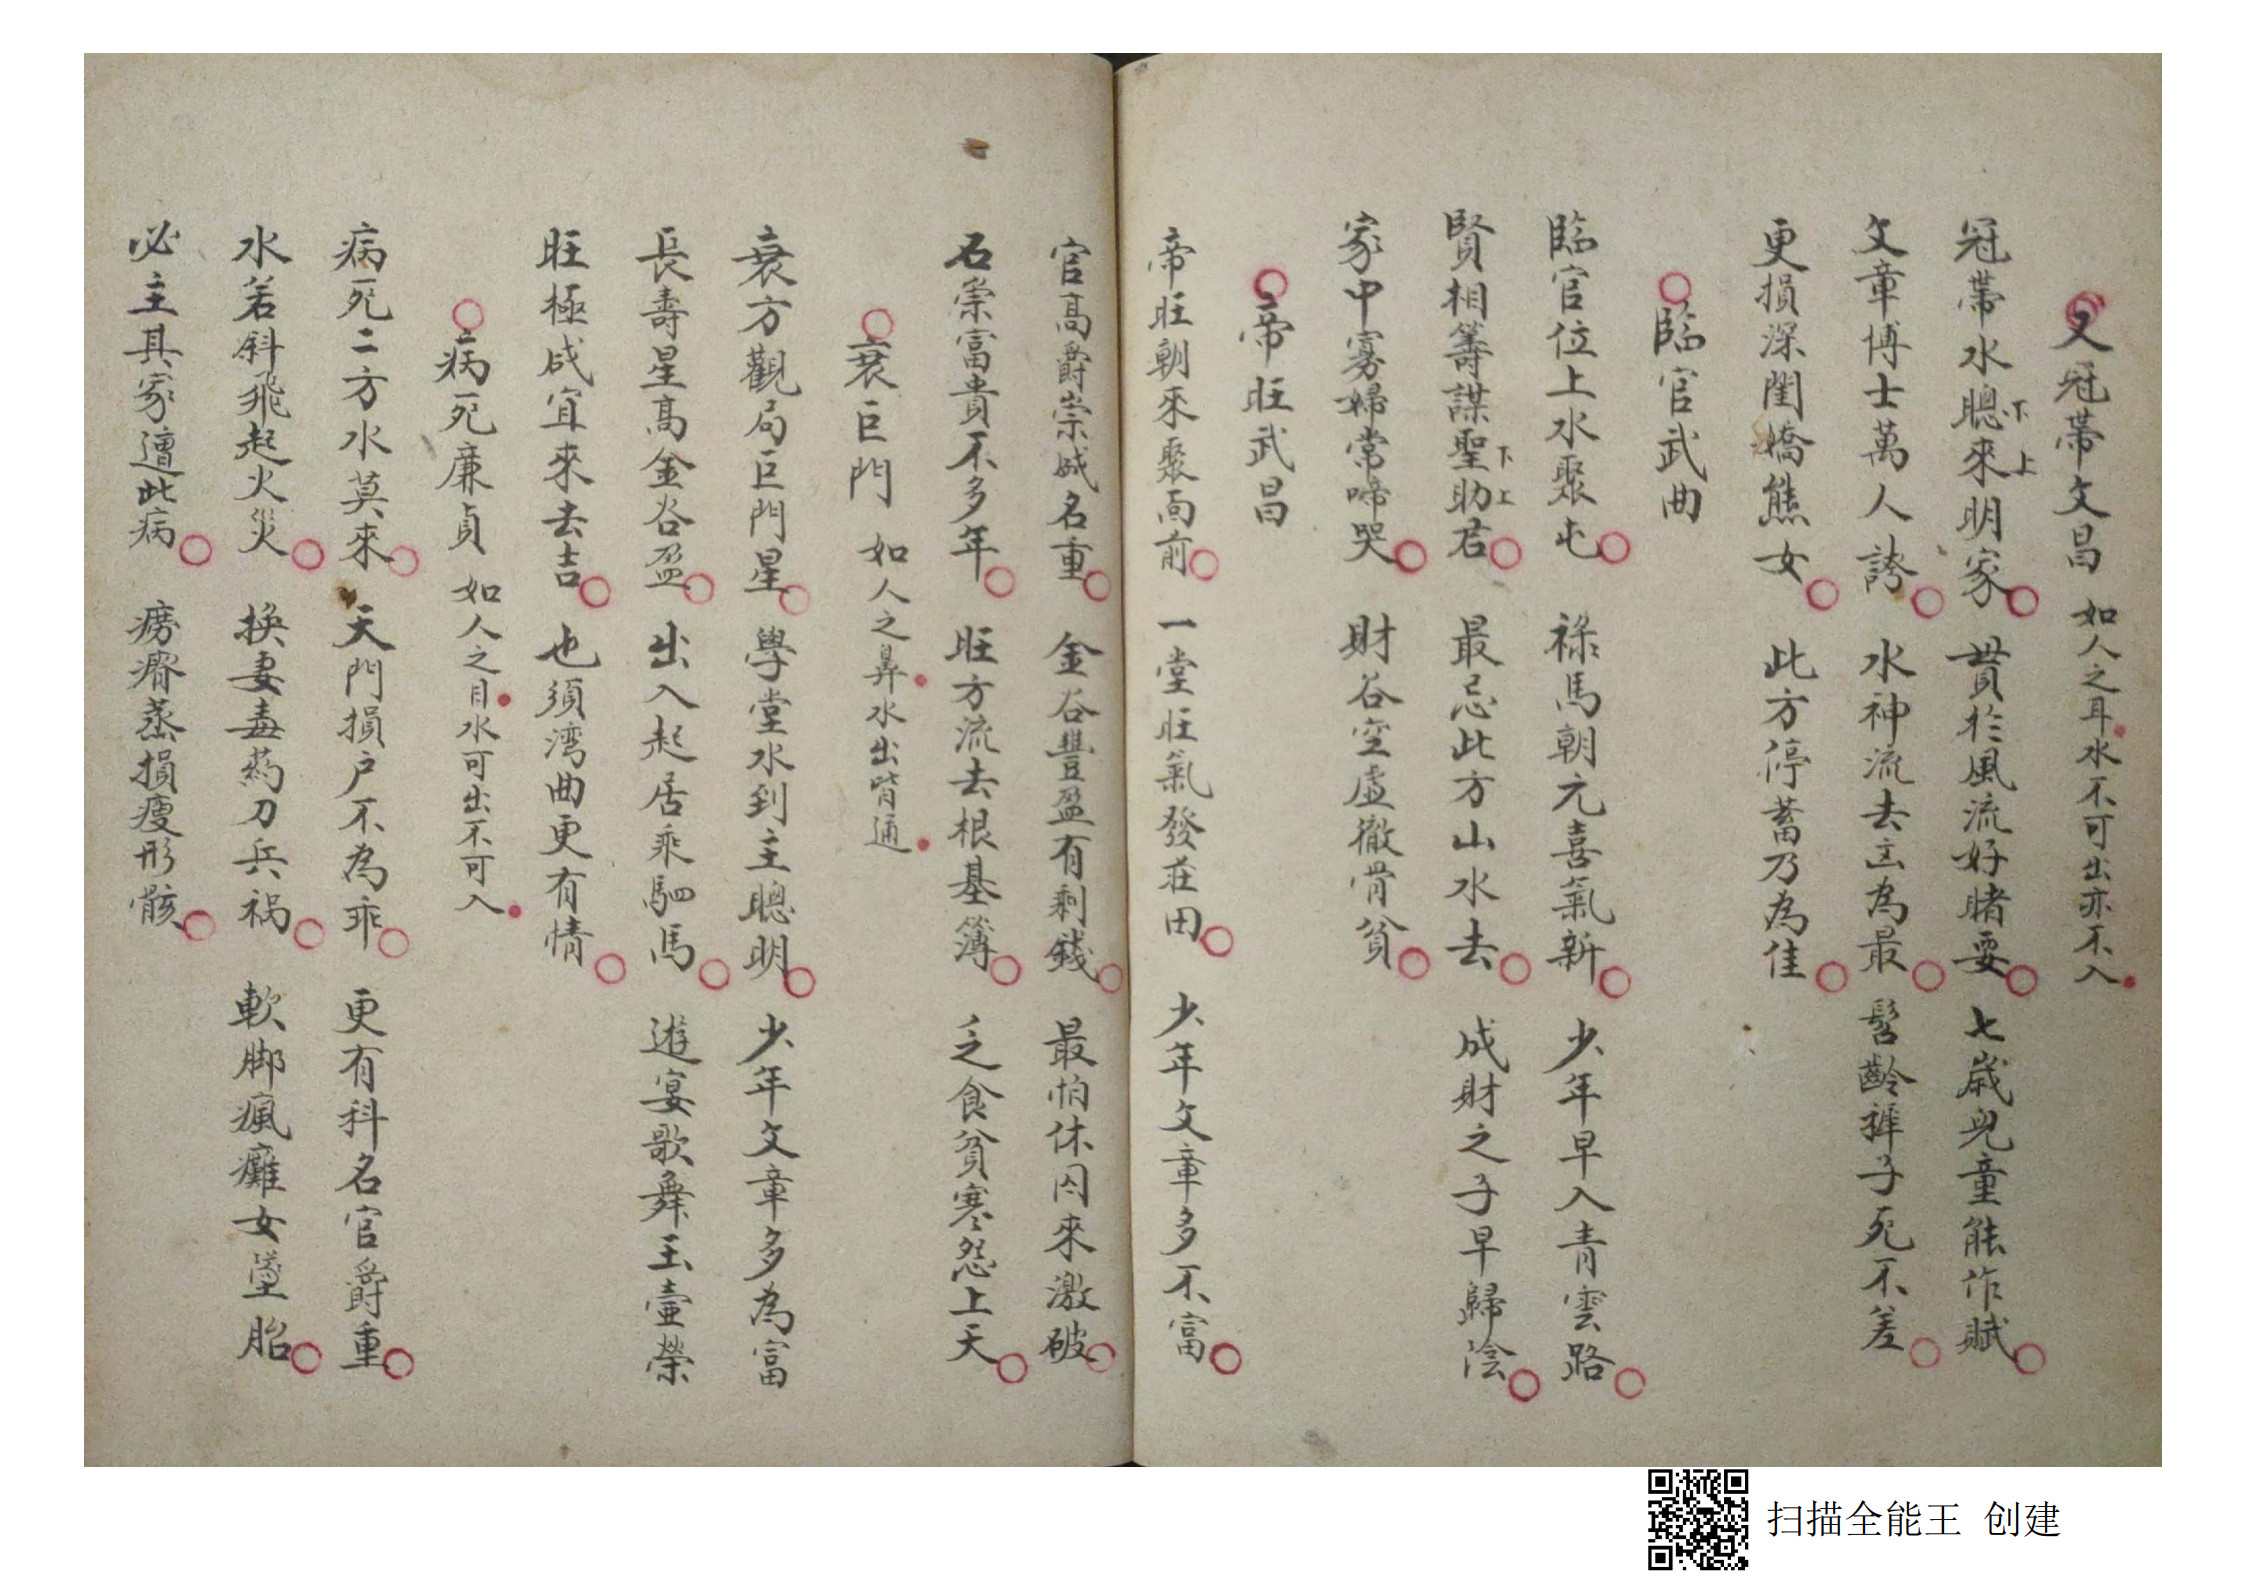 又冠帶文昌 如人之耳水不可出亦不入
冠帶水聰下來上明家 貫於風流好賭耍 七歲兒童能作賦
文章博士萬人誇 水神流去凶為最 髫齡稚子死不差
更損深閨嬌態女 此方停蓄乃為佳
臨官武曲
臨官位上水聚屯 祿馬朝元喜氣新 少年早入青雲路
賢相籌謀聖下助上君 最忌此方山水去 成財之子早歸陰
家中寡婦常啼哭 財谷空虛徹骨貧
帝旺武昌
帝旺朝來聚面前 一堂旺氣發莊田 少年文章多不富
官高爵崇威名重 金谷豐盈有剩錢 最怕休囚來激破
石崇富貴不多年 旺方流去根基簿 乏食貧寒怨上天
衰巨門 如人之鼻水出皆通
衰方觀局巨門星 學堂水到主聰明 少年文章多為富
長壽星高金谷盈 出入起居乘駟馬 遊宴歌舞玉壷榮
旺極咸宜來去吉 也須湾曲更有情
病死廉貞 如人之目水可出不可入
病死二方水莫來 天門損户不為乖 更有科名官爵重
水若斜飛起火災 换妻毒药刀兵禍 軟脚瘋癱女墮胎
必主其家遭此病 痨瘠蒸損瘦形骸
扫描全能王 创建